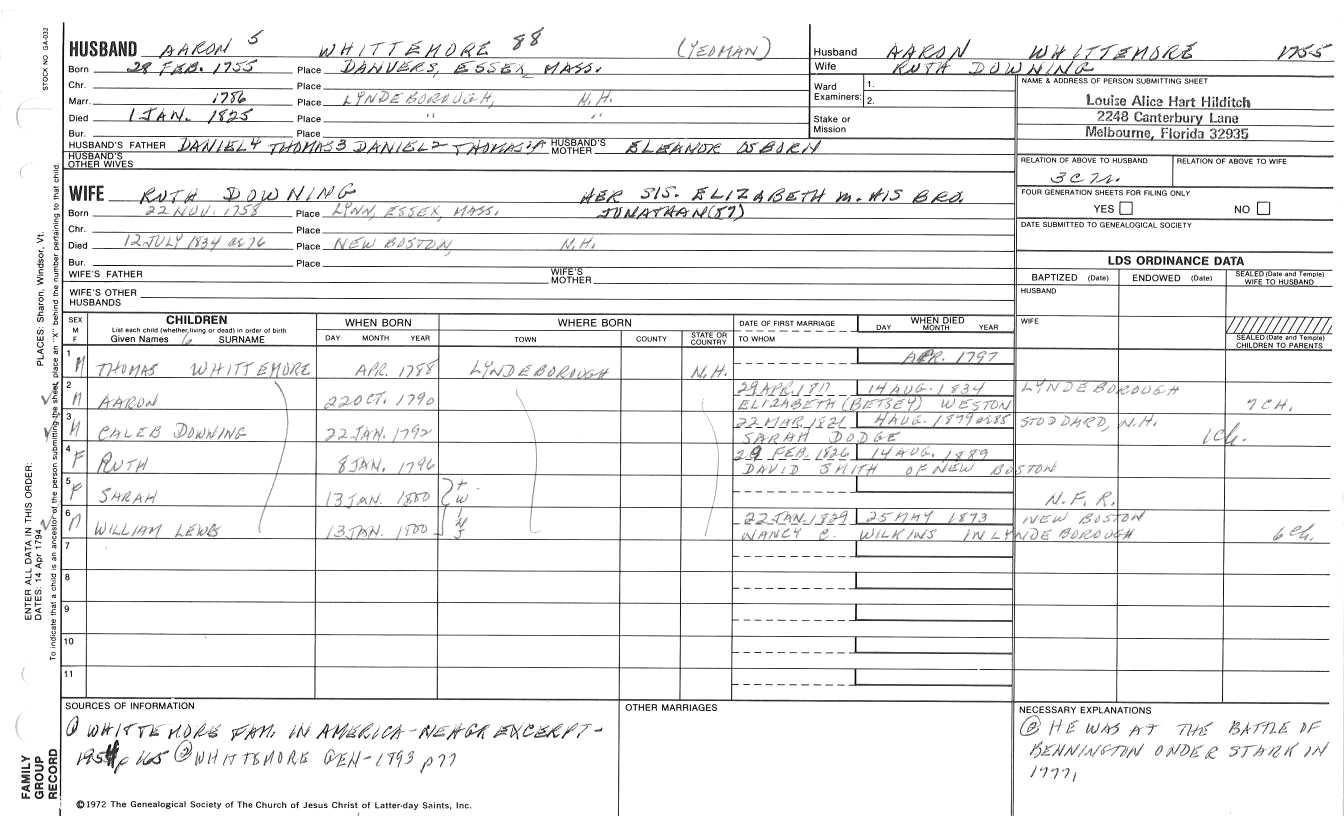 STOCK NO GA-032
HUSBAND AARON 5 WHITTEMORE 88 (YEOMAN)
Born 28 FEB. 1755 Place DANVERS, ESSEX, MASS.
Chr. Place
Marr. 1786 Place LYNDEBOROUGH, N.H.
Died 1 JAN. 1825 Place " "
Bur. Place
HUSBAND'S FATHER DANIEL4 THOMAS3 DANIEL2 THOMAS1A HUSBAND'S MOTHER ELEANOR OSBORN
HUSBAND'S OTHER WIVES
WIFE RUTH DOWNING HER SIS. ELIZABETH m. HIS BRO.
JONATHAN (87)
Born 22 NOV. 1758 Place LYNN, ESSEX, MASS.
Chr. Place
Died 12 JULY 1834 ae 76 Place NEW BOSTON, N.H.
Bur. Place
WIFE'S FATHER WIFE'S MOTHER
WIFE'S OTHER HUSBANDS
Husband AARON WHITTEMORE 1755
Wife RUTH DOWNING
Ward Examiners: 1.
2.
Stake or Mission
NAME & ADDRESS OF PERSON SUBMITTING SHEET
Louise Alice Hart Hilditch
2248 Canterbury Lane
Melbourne, Florida 32935
RELATION OF ABOVE TO HUSBAND RELATION OF ABOVE TO WIFE
3C 7r.
FOUR GENERATION SHEETS FOR FILING ONLY
YES NO
DATE SUBMITTED TO GENEALOGICAL SOCIETY
LDS ORDINANCE DATA
BAPTIZED (Date) ENDOWED (Date) SEALED (Date and Temple) WIFE TO HUSBAND
HUSBAND
WIFE
SEALED (Date and Temple) CHILDREN TO PARENTS
SEX M F CHILDREN WHEN BORN WHERE BORN DATE OF FIRST MARRIAGE WHEN DIED
List each child (whether living or dead) in order of birth
Given Names 6 SURNAME DAY MONTH YEAR TOWN COUNTY STATE OR COUNTRY TO WHOM DAY MONTH YEAR
1 M THOMAS WHITTEMORE APR. 1788 LYNDEBOROUGH N.H. APR. 1797
2 M AARON 22 OCT. 1790 29 APR. 1817 14 AUG. 1834 LYNDEBOROUGH
ELIZABETH (BETSEY) WESTON 7 CH.
3 M CALEB DOWNING 22 JAN. 1792 22 MAR. 1821 4 AUG. 1879 ae 85 STODDARD, N.H.
SARAH DODGE 1 Ch.
4 F RUTH 8 JAN. 1796 28 FEB. 1826 14 AUG. 1889
DAVID SMITH OF NEW BOSTON
5 F SARAH 13 JAN. 1800 TWINS N.F.R.
6 M WILLIAM LEWIS 13 JAN. 1800 22 JAN. 1829 25 MAY 1873 NEW BOSTON
NANCY C. WILKINS IN LYNDEBOROUGH 6 Ch.
7
8
9
10
11
SOURCES OF INFORMATION
① WHITTEMORE FAM. IN AMERICA - NEHGR EXCERPT -
1954 p 165 ② WHITTEMORE GEN - 1793 p 77
OTHER MARRIAGES
NECESSARY EXPLANATIONS
② HE WAS AT THE BATTLE OF
BENNINGTON UNDER STARK IN
1777,
©1972 The Genealogical Society of The Church of Jesus Christ of Latter-day Saints, Inc.
FAMILY GROUP RECORD
ENTER ALL DATA IN THIS ORDER:
DATES: 14 Apr 1794 PLACES: Sharon, Windsor, Vt.
To indicate that a child is an ancestor of the person submitting the sheet, place an "X" behind the number pertaining to that child.